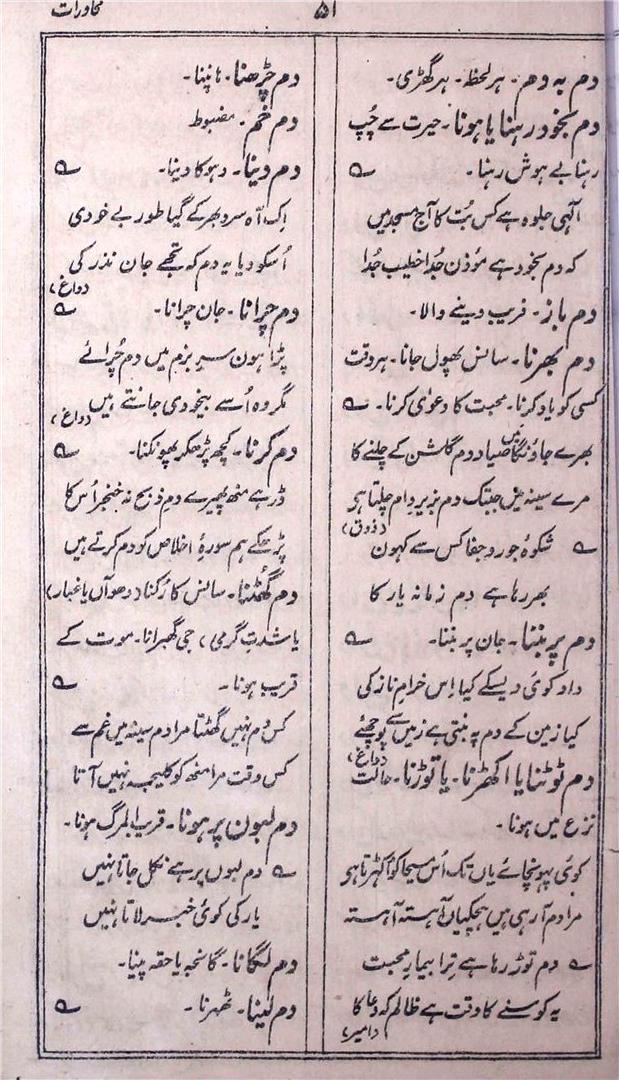 محاورات
۵۱
دم بہ دم۔ ہر لحظہ۔ ہر گھڑی۔
دم بخود رہنا یا ہونا۔ حیرت سے چُپ
رہنا بے ہوش رہنا۔
الٰہی جلوہ ہے کس بُت کا آج مسجد میں
کہ دم بخود ہے موٴذن جُدا خطیب جُدا
دم باز۔ فریب دینے والا۔
دم بھرنا۔ سانس پھول جانا۔ ہر وقت
کسی کو یاد کرنا۔ محبت کا دعوٰی کرنا۔
بھرے جاوٴنگا میں صیاد دم گلشن کے چلنے کا
مرے سینہ میں جبتک دم بزیرِ دام چلتا ہی
(ذوق)
شکوہٴ جور و جفا کس سے کہون
بھر رہا ہے دم زمانہ یار کا
دم پر بننا۔ جان پر بننا۔
داد کوئی دیسکے کیا اِس خرامِ ناز کی
کیا زمین کے دم پہ بنتی ہے زمیں سے پوچھئے
(داغ)
دم ٹوٹنا یا اکھڑنا۔ یا توڑنا۔ حالت
نزع میں ہونا۔
کوئی پہونچائے یاں تک اُس مسیحا کو اُکھڑتا ہی
مرا دم آ رہی ہیں ہچکیاں آہستہ آہستہ
دم توڑ رہا ہے تِرا بیمارِ محبت
یہ کوسنے کا وقت ہے ظالم کہ دعا کا
(امیر)
دم چڑھنا۔ ہانپنا۔
دم خم۔ مضبوط
دم دینا۔ دہوکا دینا۔
اِک آہ سرد بھر کے گیا طور بے خودی
اُسکو دیا یہ دم کہ تجھے جان نذر کی
(داغ)
دم چرانا۔ جان چرانا۔
پڑا ہون سرِ بزم میں دم چُرائے
مگر وہ اُسے بیخودی جانتے ہیں
(داغ)
دم کرنا۔ کچھ پڑھکر پھونکنا۔
ڈر ہے منھ پھیرے دمِ ذبح نہ خنجر اُس کا
پڑھکے ہم سورہٴ اخلاص کو دم کرتے ہیں
دم گُھٹنا۔ سانس کا رُکنا (دھوآں یا غبار
یا شدتِ گرمی) جی گھبرانا۔ موت کے
قریب ہونا۔
کس دَم نہیں گھٹتا مرا دم سینہ میں غم سے
کس وقت مرا منھ کو کلیجہ نہیں آتا
دم لبون پر ہونا۔ قریب المرگ ہونا۔
دم لبوں پر ہے نکل جاتا نہیں
یار کی کوئی خبر لاتا نہیں
دم لگانا۔ گانجہ یا حقہ پینا۔
دم لینا۔ ٹھہرنا۔